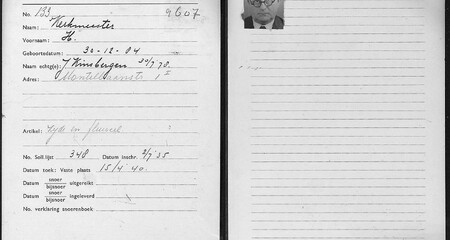 No. 133 9607
Naam: Werkmeester
Voornaam: H.
Geboortedatum: 30-12-04
Naam echtg(e): J. Kinsbergen 30/7 70
Adres: 1 II
Artikel: Zyde en fluweel
No. Soll.lijst 348 Datum inschr. 2/7 35
Datum toek: Vaste plaats 15/4 40
Datum snoer uitgereikt
bijsnoer
Datum snoer ingeleverd
bijsnoer
No. verklaring snoerenboek